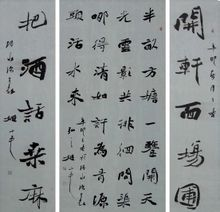 開軒面場圃
半畝方塘一鑒開天
光雲影共徘徊問渠
哪得清如許為有源
頭活水來
把酒話桑麻